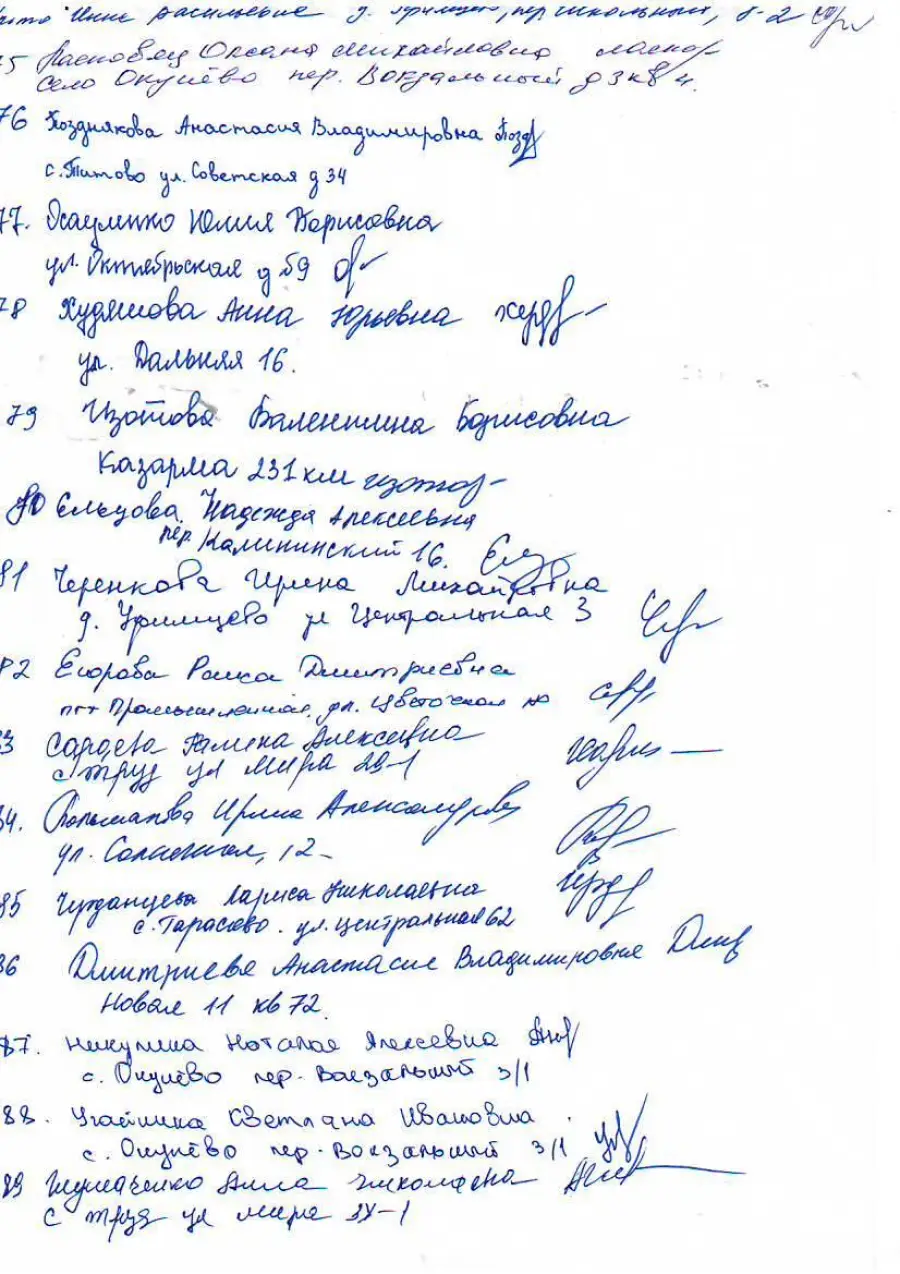 Инне Васильевне д. Уфимцево, пер Школьный, 8-2
75 Ласковец Оксана Михайловна
село Окунёво пер. Вокзальный д 3 кв 4.
76 Позднякова Анастасия Владимировна Позд
с. Титово ул. Советская д 34
77. Осауленко Юлия Борисовна
ул. Октябрьская д 59
78 Худяшова Анна Юрьевна
ул. Дальняя 16.
79 Изотова Валентина Борисовна
Казарма 231 км изотов
80 Ельцова Надежда Алексеевна
пер Калининский 16. Ел
81 Черенкова Ирина Михайловна
д. Уфимцево ул Центральная 3
82 Егорова Раиса Дмитриевна
пгт Промышленная, ул. Цветочная
83 Галина Алексеевна
с труд ул Мира 29-1
84. Ирина
ул. Солнечная, 12
85 Чурданцева Лариса Николаевна
с. Тарасово. ул. центральная 62
86 Дмитриева Анастасия Владимировна Дмив
Новая 11 кв 72.
87. Никулина Наталая Алексеевна
с. Окунёво пер. Вокзальный 3/1
88. Светлана Ивановна
с. Окунёво пер. Вокзальный 3/1
89 Николаевна
с труд ул мира